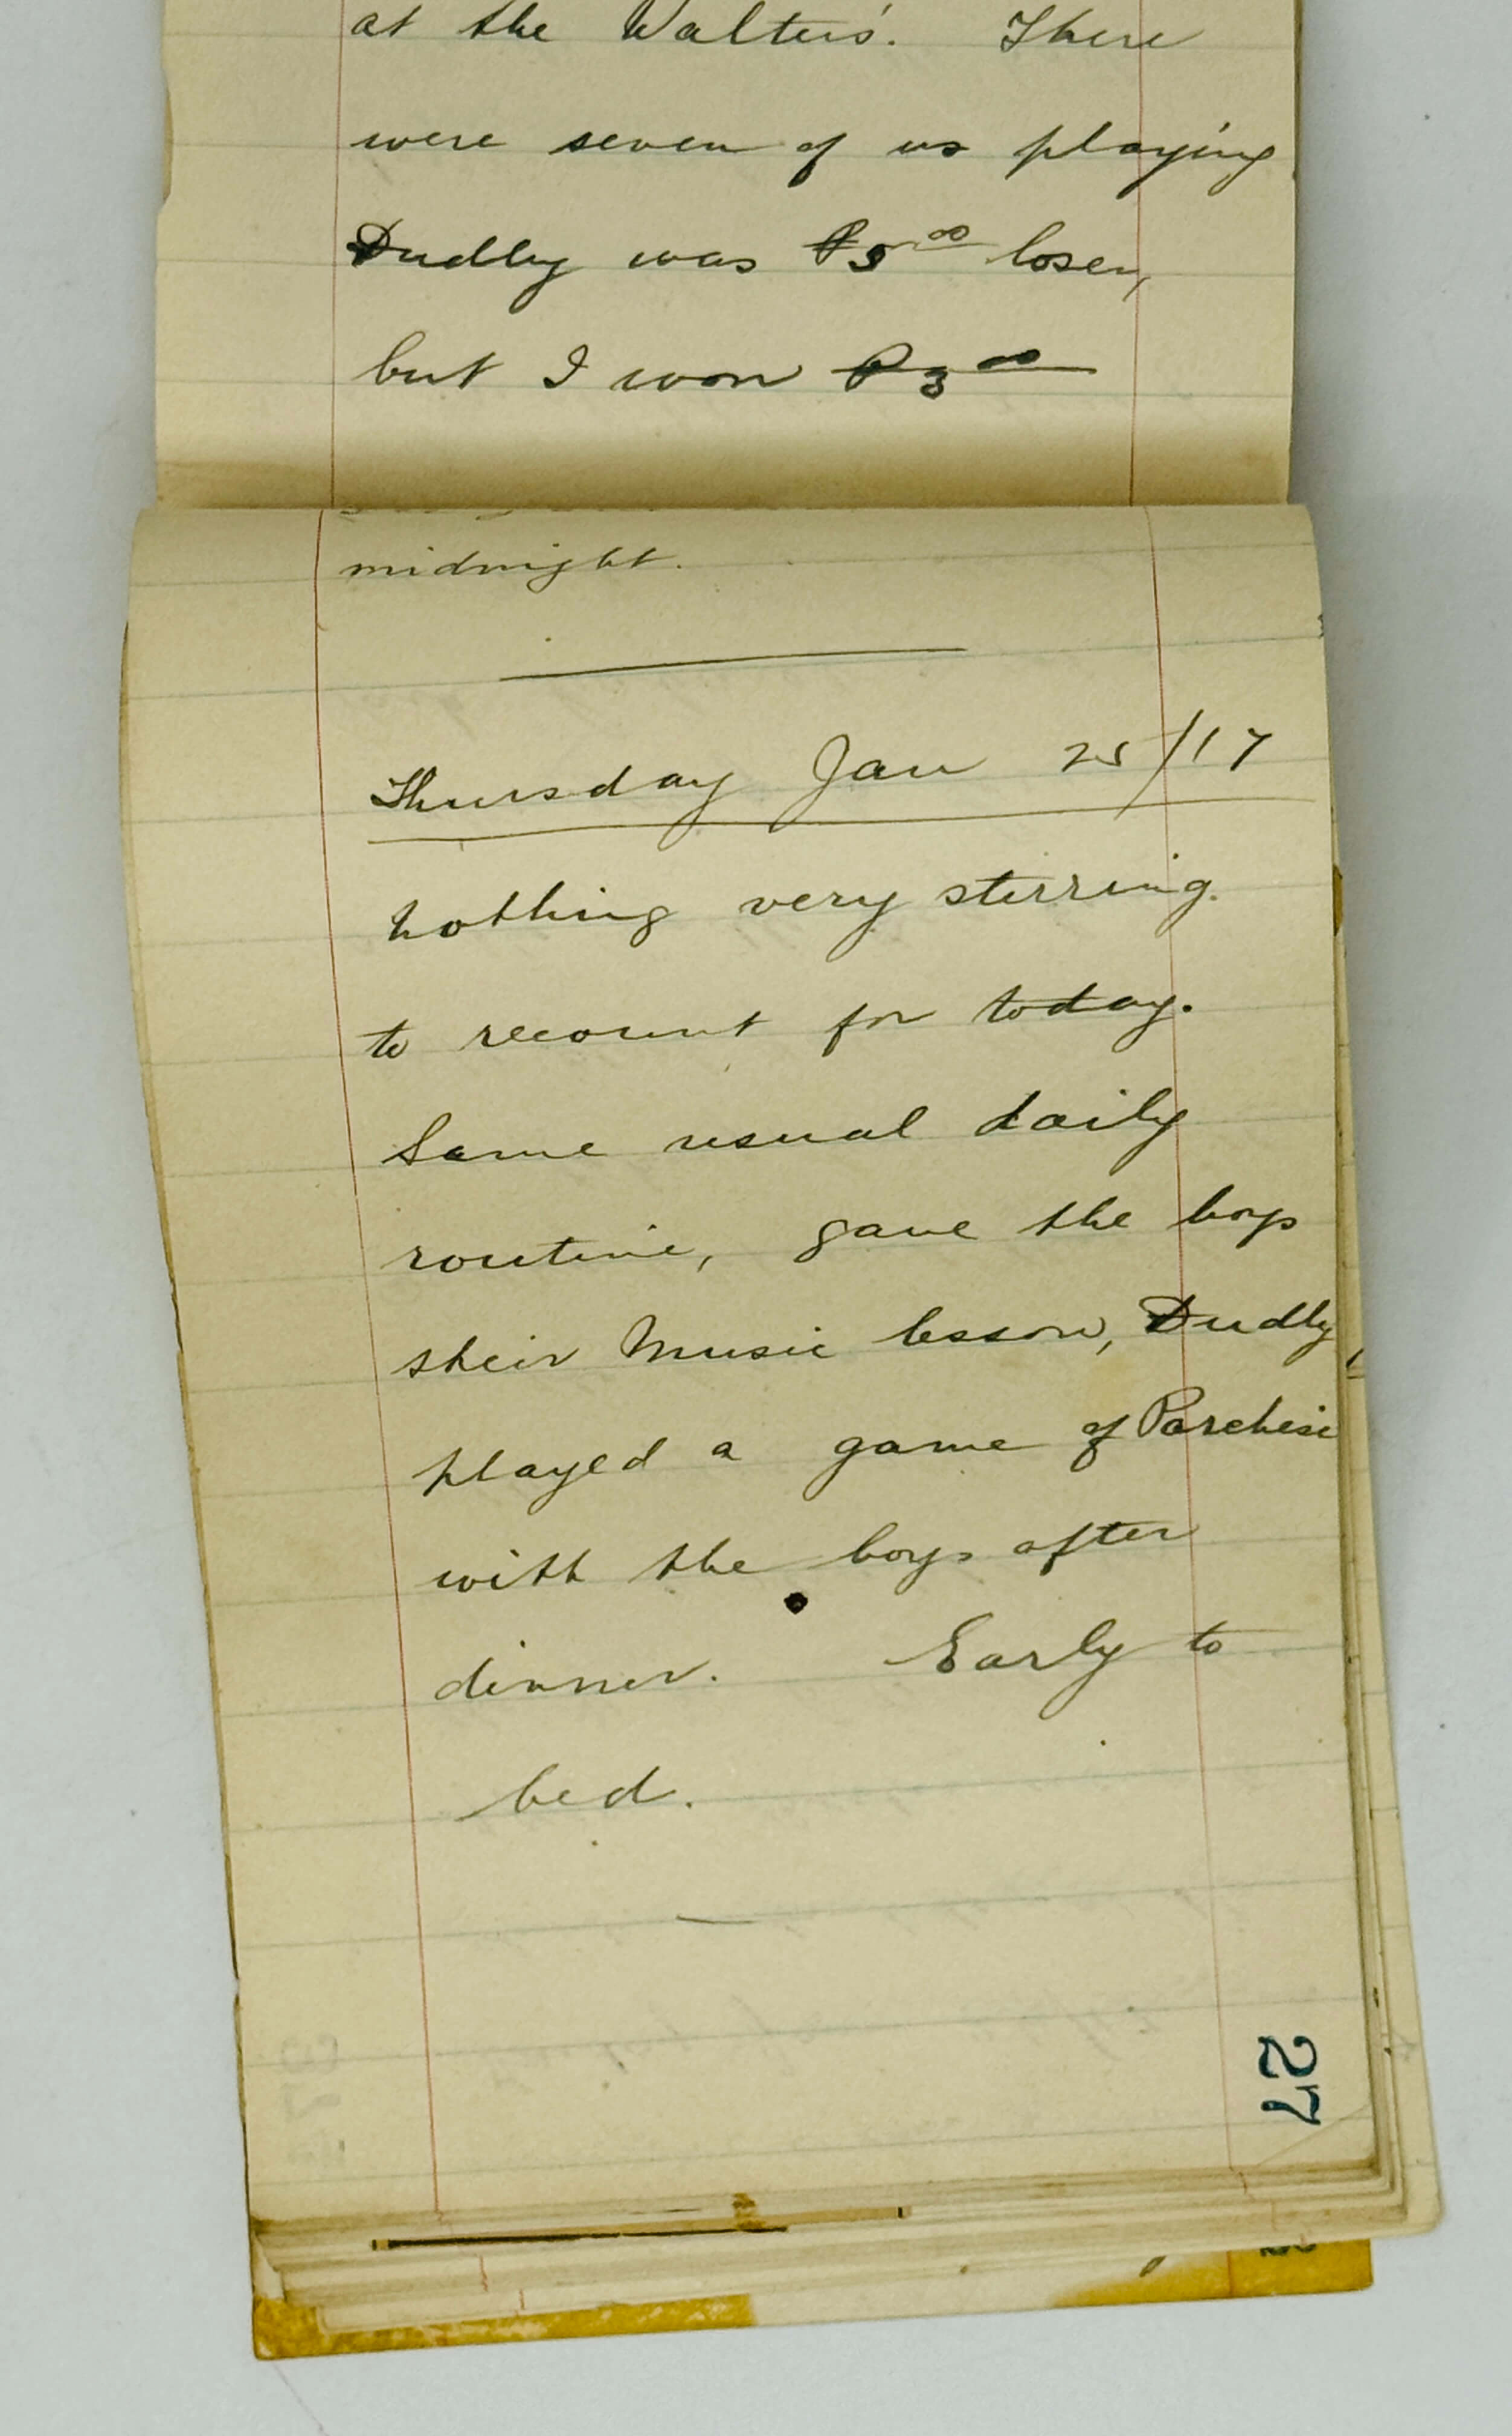 at the Walters'. There
were seven of us playing
Dudly was ₱5.00 loser,
but I won ₱3.00
midnight.
Thursday Jan 25/17
Nothing very sterring.
to recount for today.
Same usual daily
routine, gave the boys
their Music lesson, Dudly
played a game of Parchesi
with the boys after
dinner. Early to
bed.
27